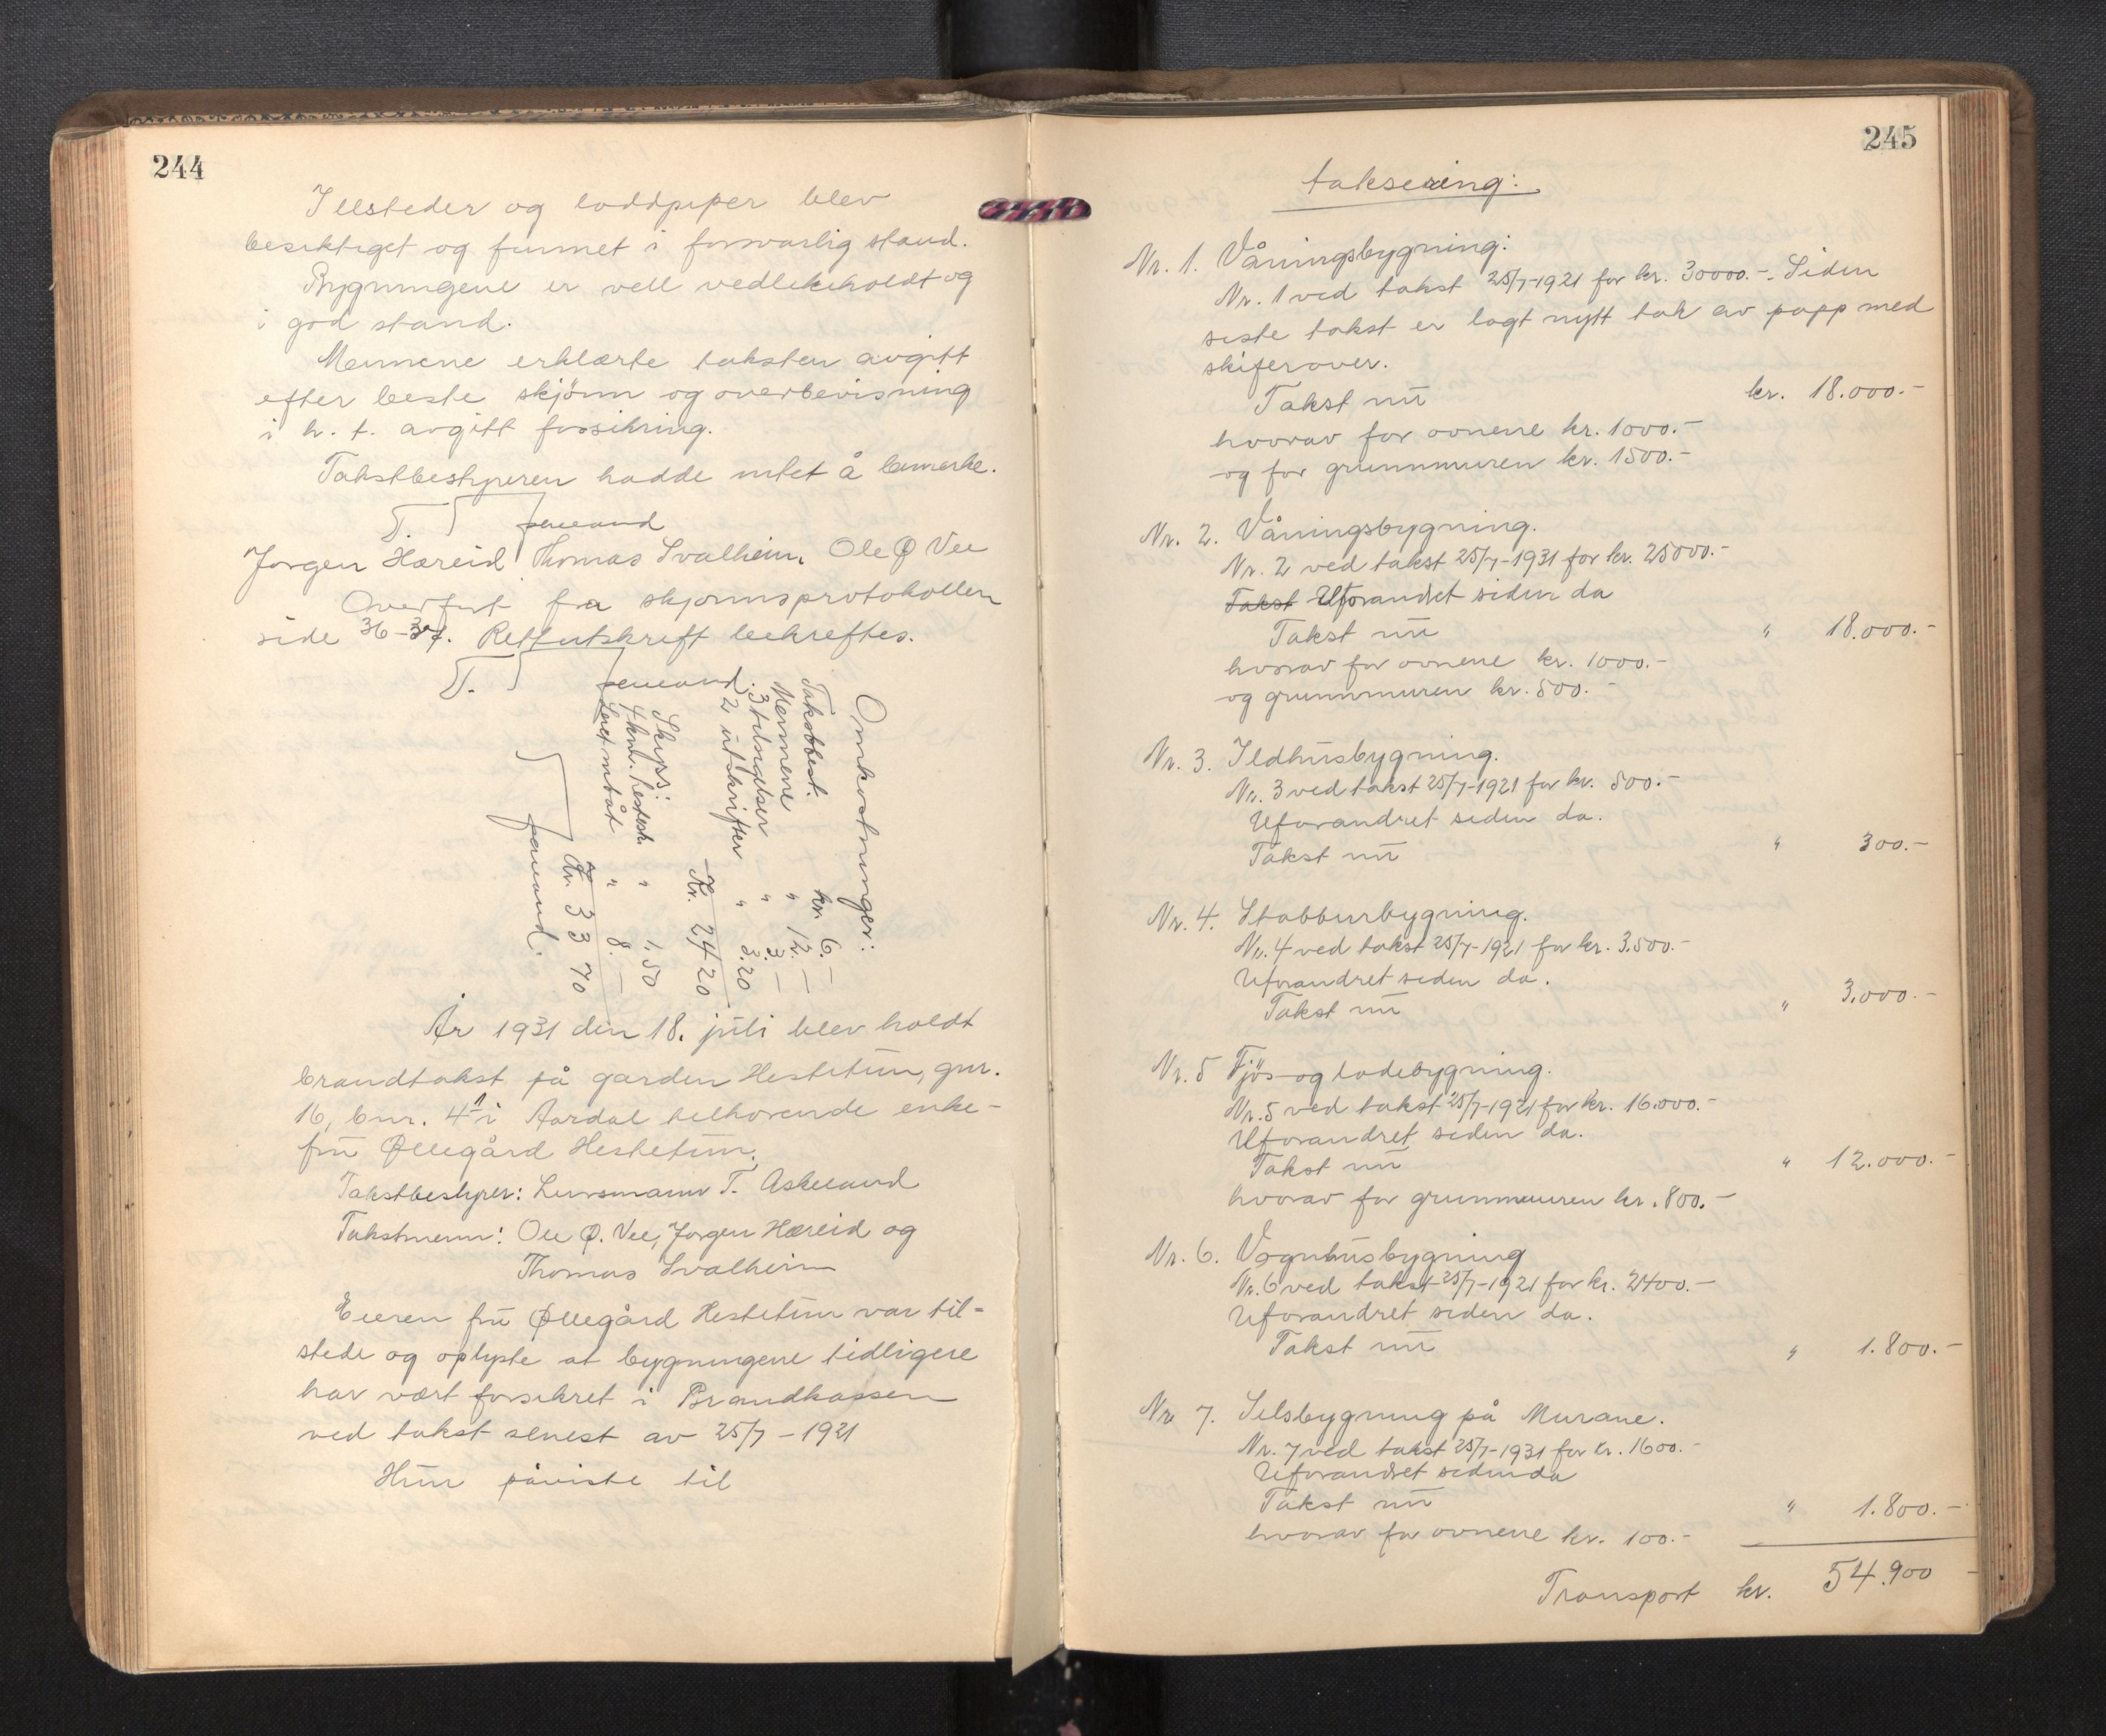 244
Illsteder og loddpiper blev
besiktiget og funnet i forsvarlig stand.
Bygningene er vell vedlikeholdt og
i god stand.
Mennene erklærte taksten avgitt
efter beste skjönn og overbevisning
i h. t. avgitt forsikring.
Takstbestyreren hadde intet å bemerke.
T. Askeland
Jørgen Hæreid Thomas Svalheim, Ole Ø Vee
Overført fra skjønnsprotokollen
side 36-37. Rett utskrift bekreftes.
T. Askeland.
Omkostninger:
Takstbest. kr. 6.—
Mennene " 12.—
3 tilsigelser " 3.—
2 utskrifter " 3.20
Kr. 24 20
Skyss:
4 km. hestesk. " 1.50
Lensm. båt " 8.—
Kr. 33 70
Askeland.
År 1931 den 18. juli blev holdt
brandtakst på garden Hestetun, gnr.
16, bnr. 4 i Aardal tilhørende enke-
fru Øllegård Hestetun.
Takstbestyrer: Lensmann T. Askeland
Takstmenn: Ole Ø. Vee, Jørgen Hæreid og
Thomas Svalheim
Eieren fru Øllegård Hestetun var til=
stede og oplyste at bygningene tidligere
har vært forsikret i Brandkassen
ved takst senest av 25/7 - 1921
Hun påviste til
245
taksering:
Nr. 1. Våningsbygning:
Nr. 1 ved takst 25/7-1921 for kr. 30000.-. Siden
siste takst er lagt nytt tak av papp med
skifer over.
Takst nu kr. 18.000.-
hvorav for ovnene kr. 1000.-
og for grunnmuren kr. 1500.-
Nr. 2. Våningsbygning.
Nr. 2 ved takst 25/7-1931 for kr. 25000.-
Takst Uforandret siden da
Takst nu " 18.000.-
hvorav for ovnene kr. 1000.-
og grunnmuren kr. 500.-
Nr. 3. Ildhusbygning.
Nr. 3 ved takst 25/7-1921 for kr. 500.-
Uforandret siden da.
Takst nu " 300.-
Nr. 4. Stabbursbygning.
Nr. 4 ved takst 25/7-1921 for kr. 3.500.-
Uforandret siden da.
Takst nu " 3.000.-
Nr. 5 Fjös- og ladebygning.
Nr. 5 ved takst 25/7-1921 for kr. 16.000.-
Uforandret siden da.
Takst nu " 12.000.-
hvorav for grunnmuren kr. 800.-
Nr. 6. Vognhusbygning
Nr. 6 ved takst 25/7-1921 for kr. 2400.-
Uforandret siden da.
Takst nu " 1.800.-
Nr. 7. Selsbygning på Murane.
Nr. 7 ved takst 25/7-1931 for kr. 1600.-
Uforandret siden da
Takst nu " 1.800.-
hvorav for ovnene kr. 100.-
Transport kr. 54.900 -